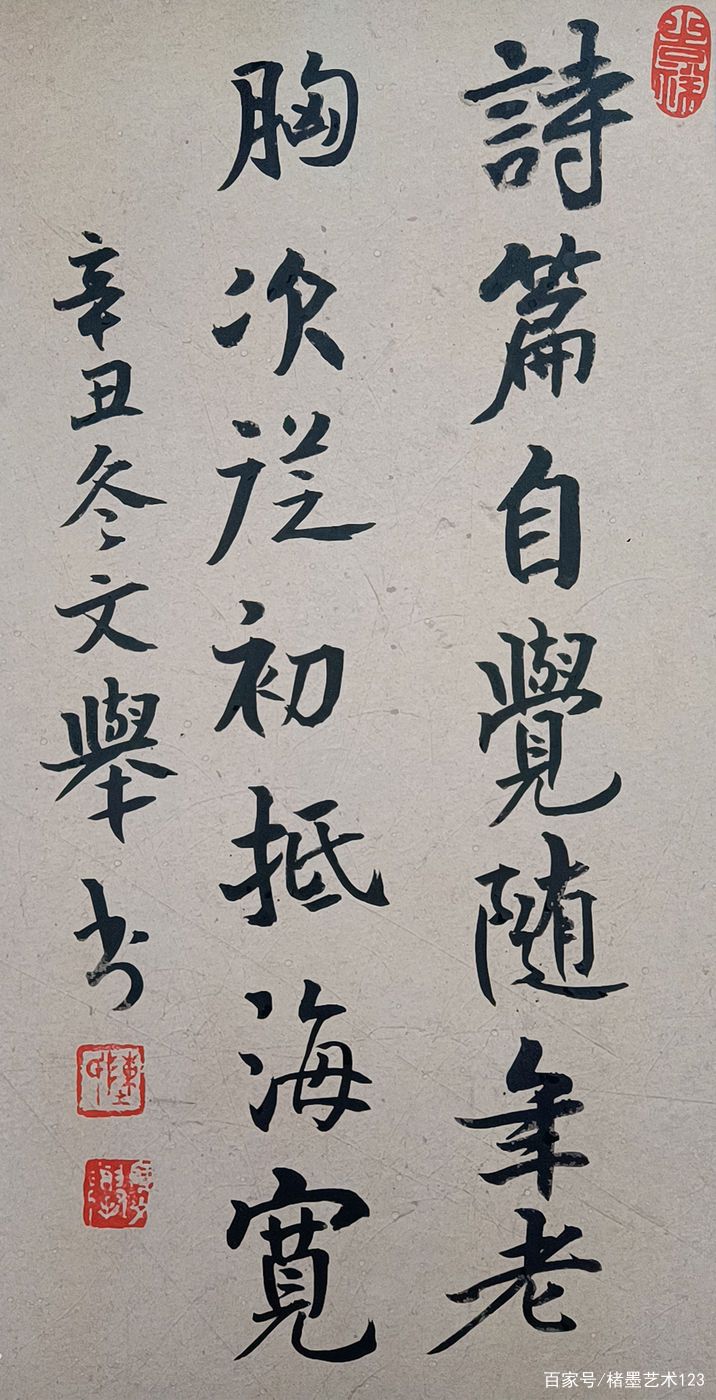 詩篇自覺随年老
胸次從初抵海寬
辛丑冬文舉书
百家号/楮墨艺术123